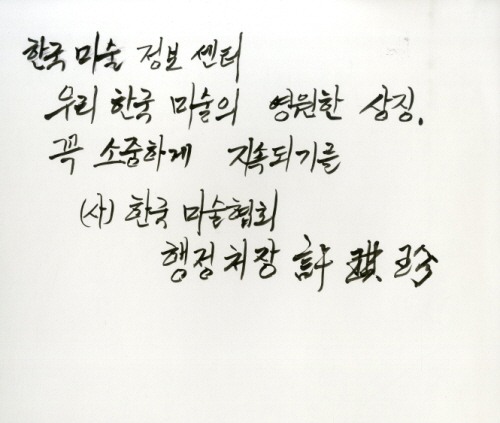 한국 미술 정보 센터
우리 한국 미술의 영원한 상징.
꼭 소중하게 지속되기를
(사) 한국 미술협회
행정처장 許 琪 珍